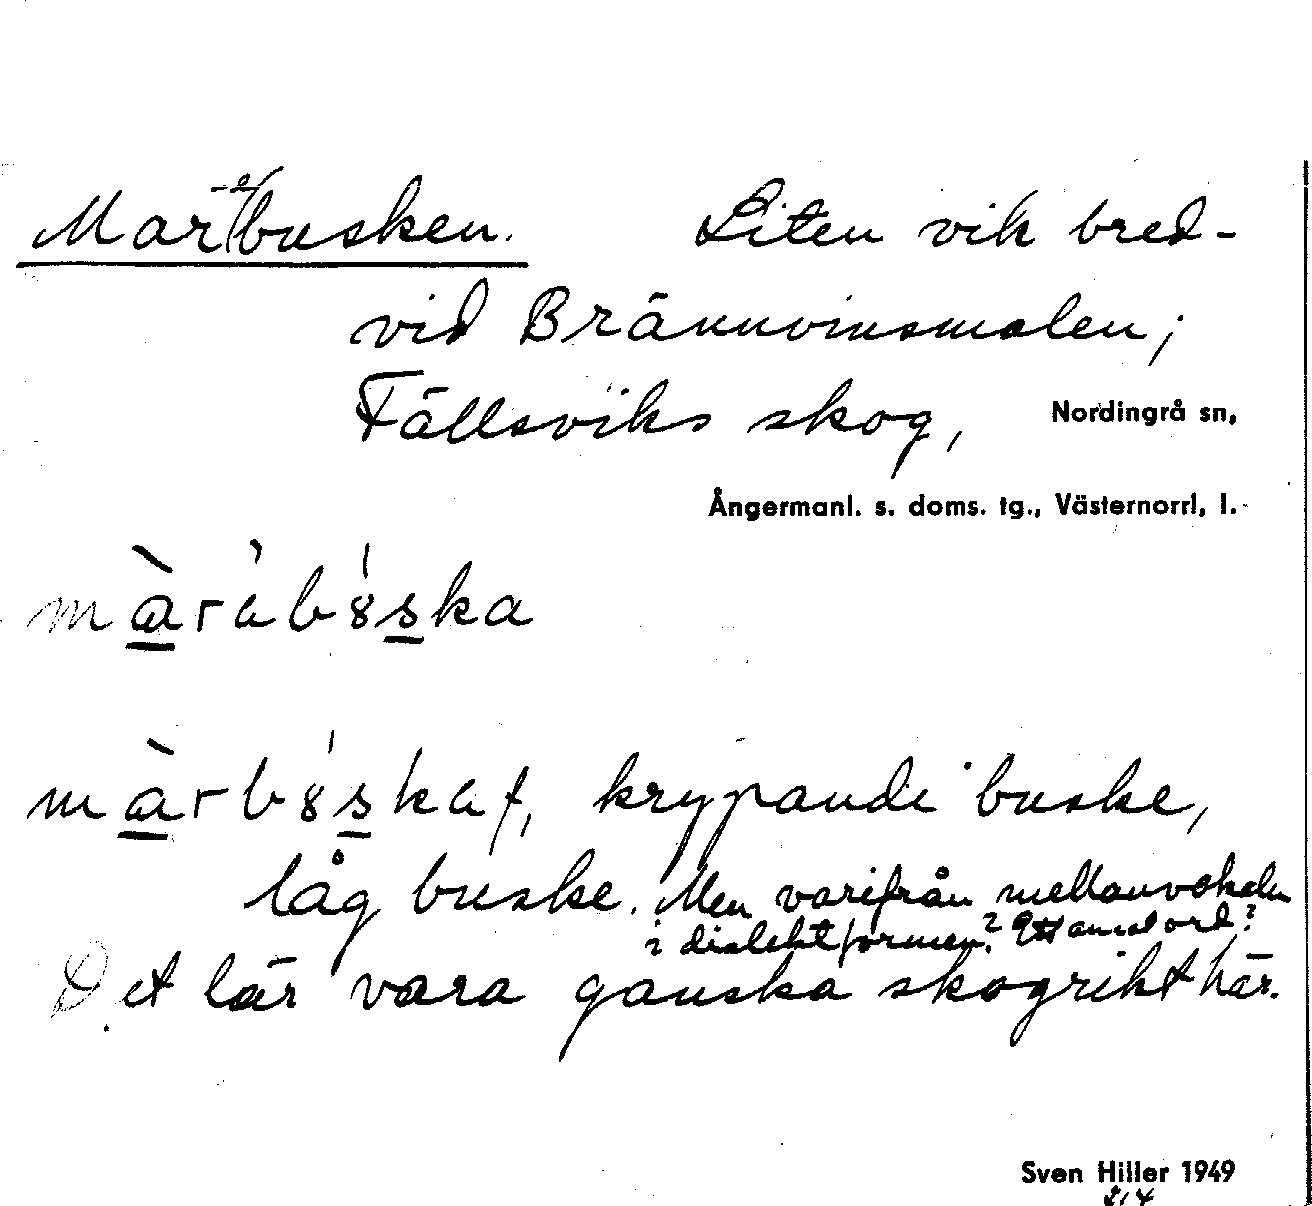 Mar-e-busken. Liten vik bred-
vid Brännvinsmalen;
Fällsviks skog, Nordingrå sn,
Ångermanl. s. doms. tg., Västernorrl. l.
màràb8ska
màrb8ska f, krypande buske,
låg buske. Men varifrån mellanvokalen
i dialektformen? Ett annat ord?
Det lär vara ganska skogrikt här.
Sven Hiller 1949